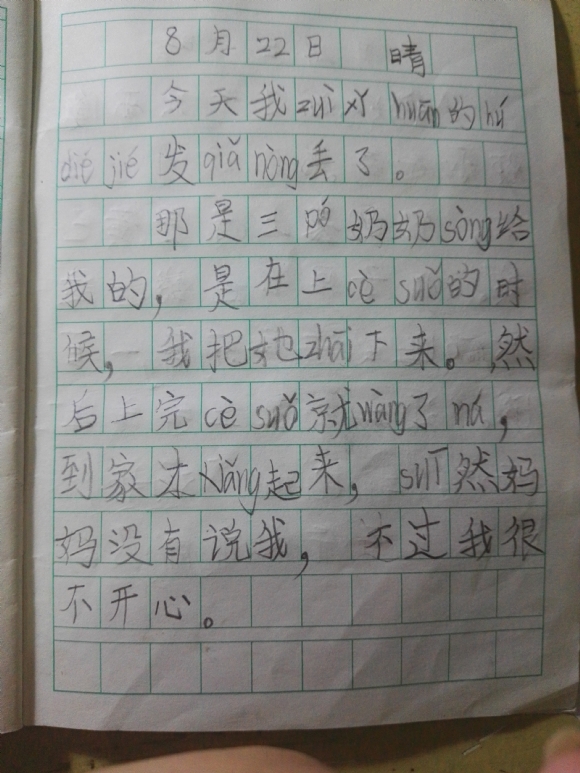 8月22日 晴
今天我zuì xǐ huān的hú
dié jié发qiǎ nòng丢了。
那是三奶奶sòng给
我的，是在上cè suǒ的时
候，我把她zhāi下来。然
后上完cè suǒ就wàng了ná，
到家才xiǎng起来，suī然妈
妈没有说我，不过我很
不开心。